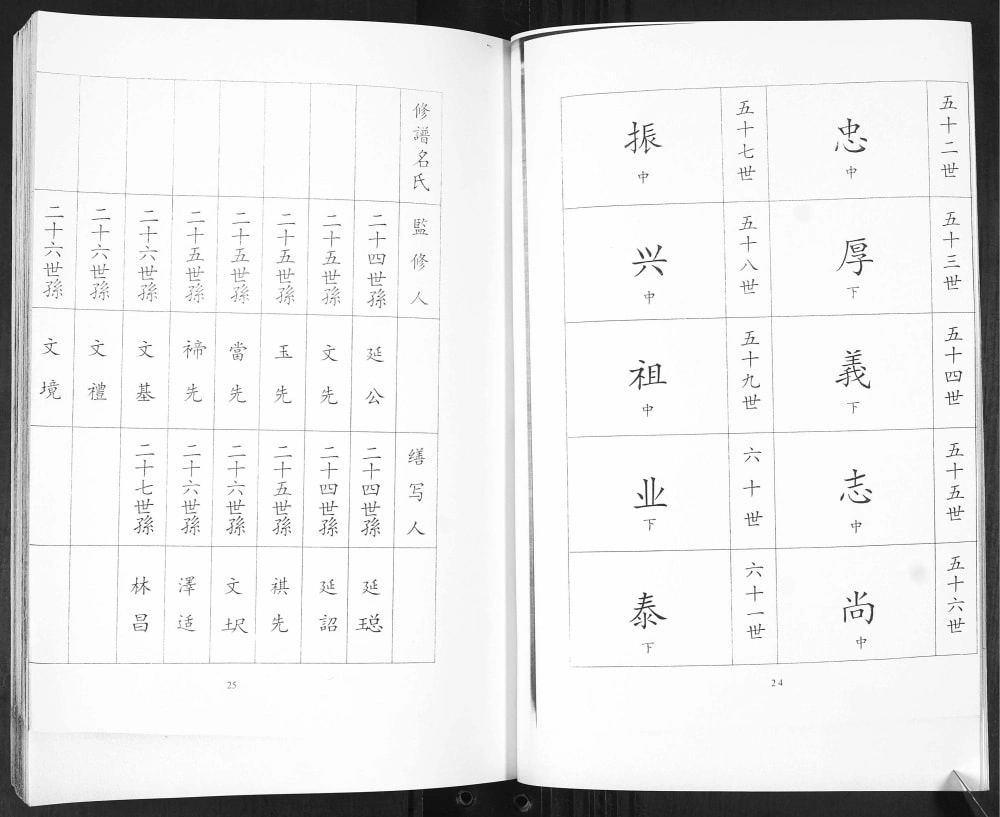 五十二世
忠
中
五十三世
厚
下
五十四世
義
下
五十五世
志
中
五十六世
尚
中
五十七世
振
中
五十八世
兴
中
五十九世
祖
中
六十世
业
下
六十一世
泰
下
24
修譜名氏
監修人
二十四世孫
延公
二十五世孫
文先
二十五世孫
玉先
二十五世孫
當先
二十五世孫
禘先
二十六世孫
文基
二十六世孫
文禮
二十六世孫
文境
缮写人
二十四世孫
延璁
二十四世孫
延詔
二十五世孫
祺先
二十六世孫
文
二十六世孫
澤适
二十七世孫
林昌
25